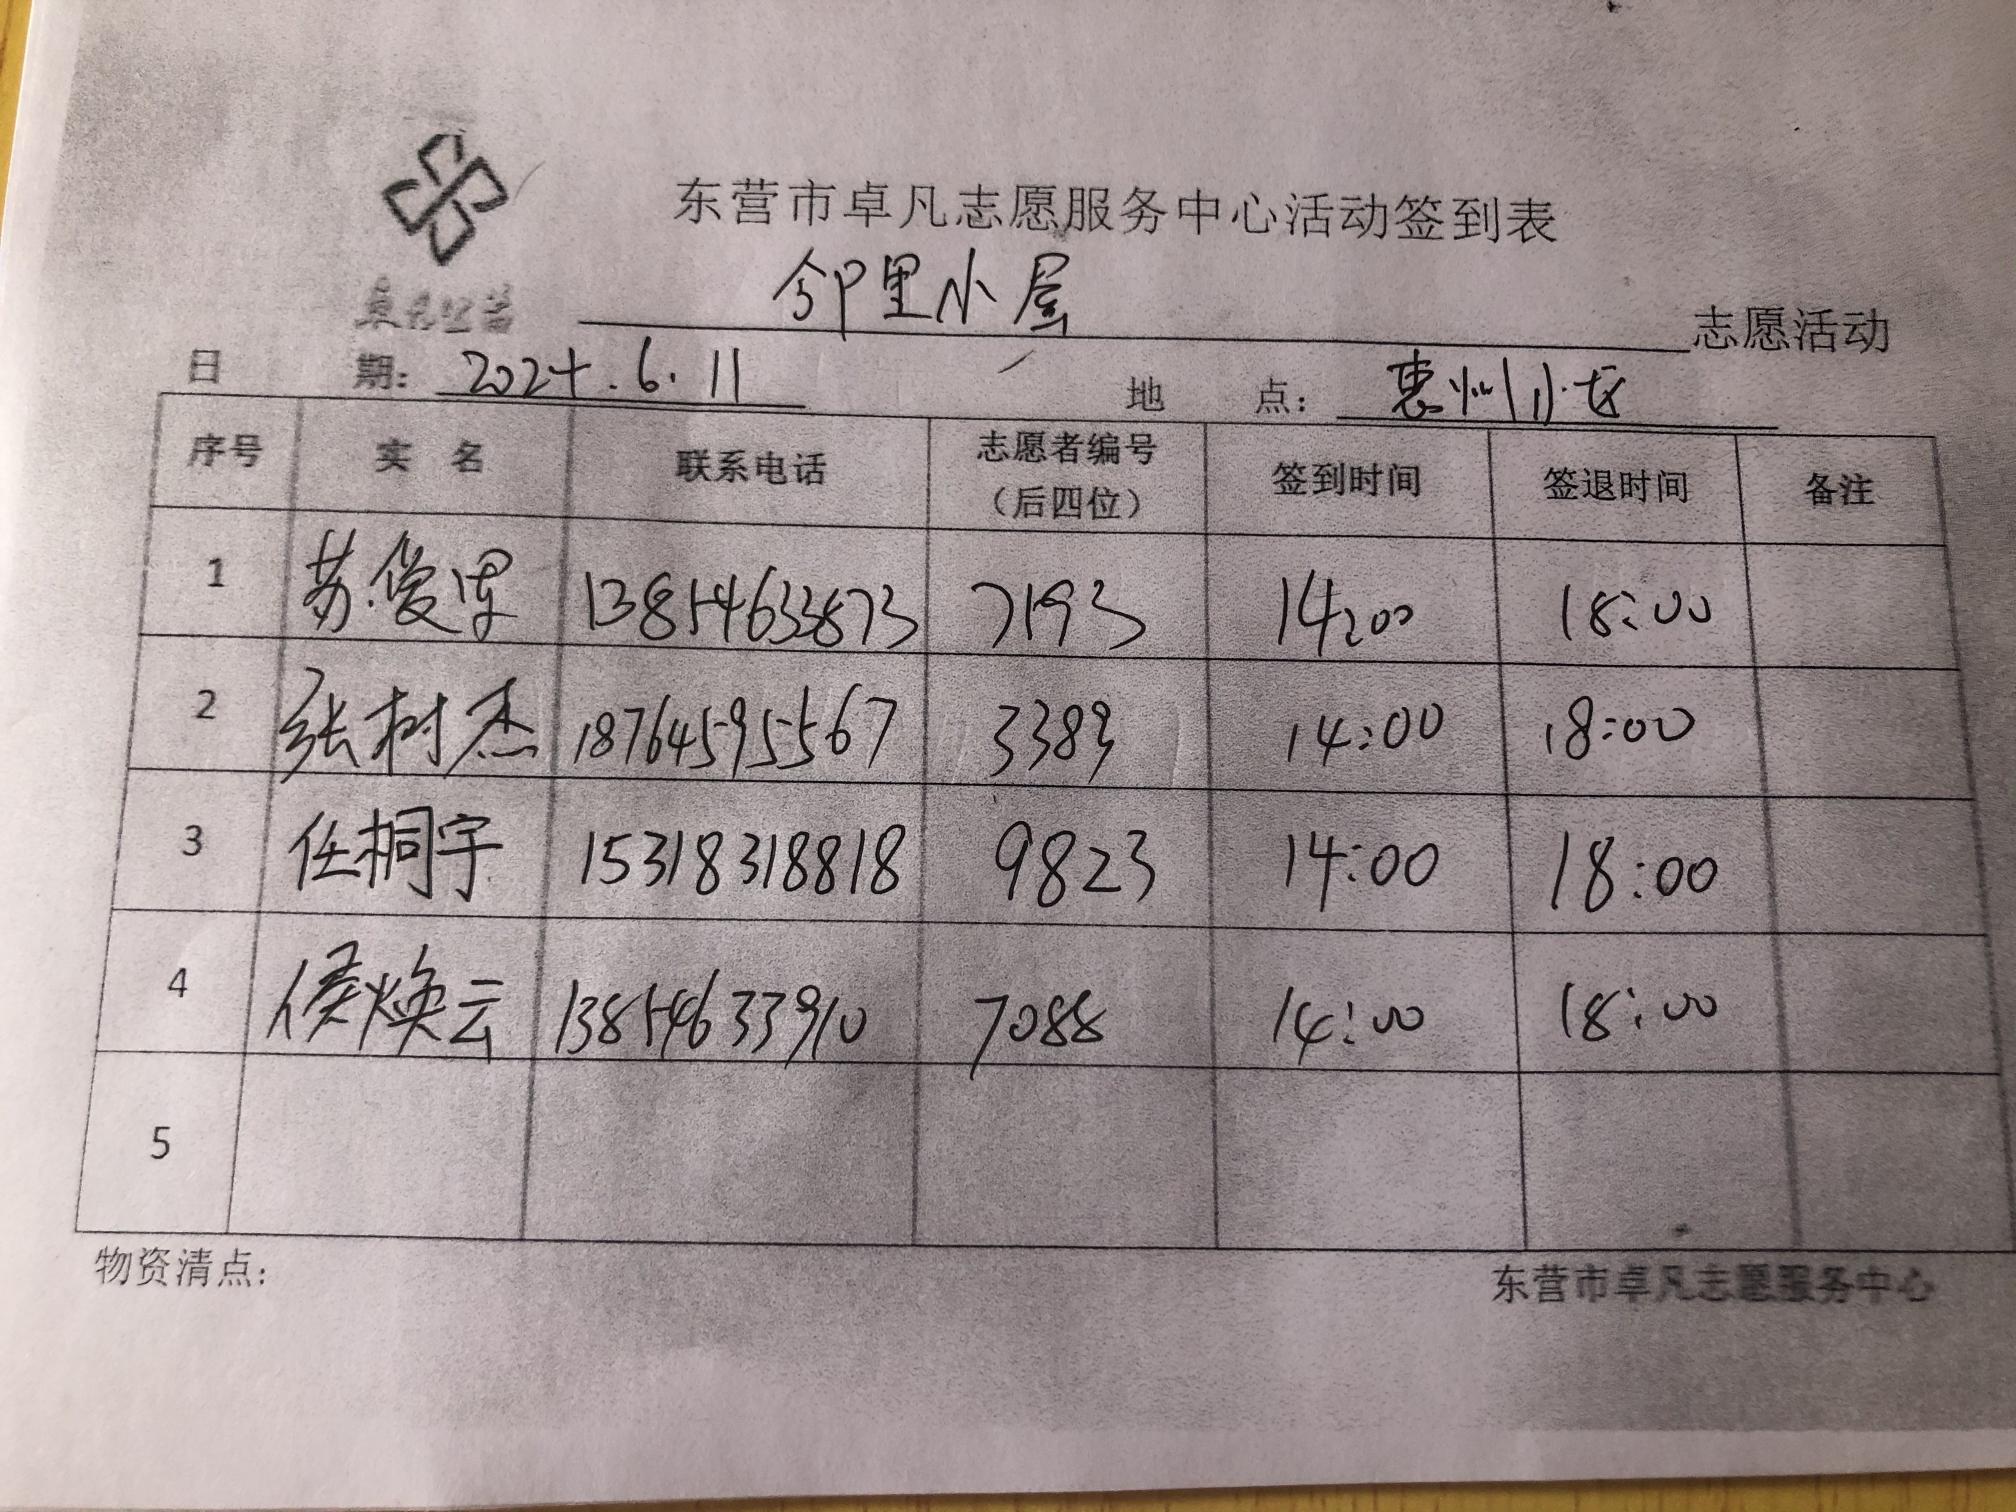 东营市卓凡志愿服务中心活动签到表
卓凡公益
邻里小屋 志愿活动
日 期: 2024.6.11 地 点: 惠州小区
序号 实 名 联系电话 志愿者编号（后四位） 签到时间 签退时间 备注
1 苏俊 13854633873 7193 14:00 18:00
2 张树杰 18764595567 3383 14:00 18:00
3 任桐宇 15318318818 9823 14:00 18:00
4 侯焕云 13854633910 7088 14:00 18:00
5
物资清点: 东营市卓凡志愿服务中心